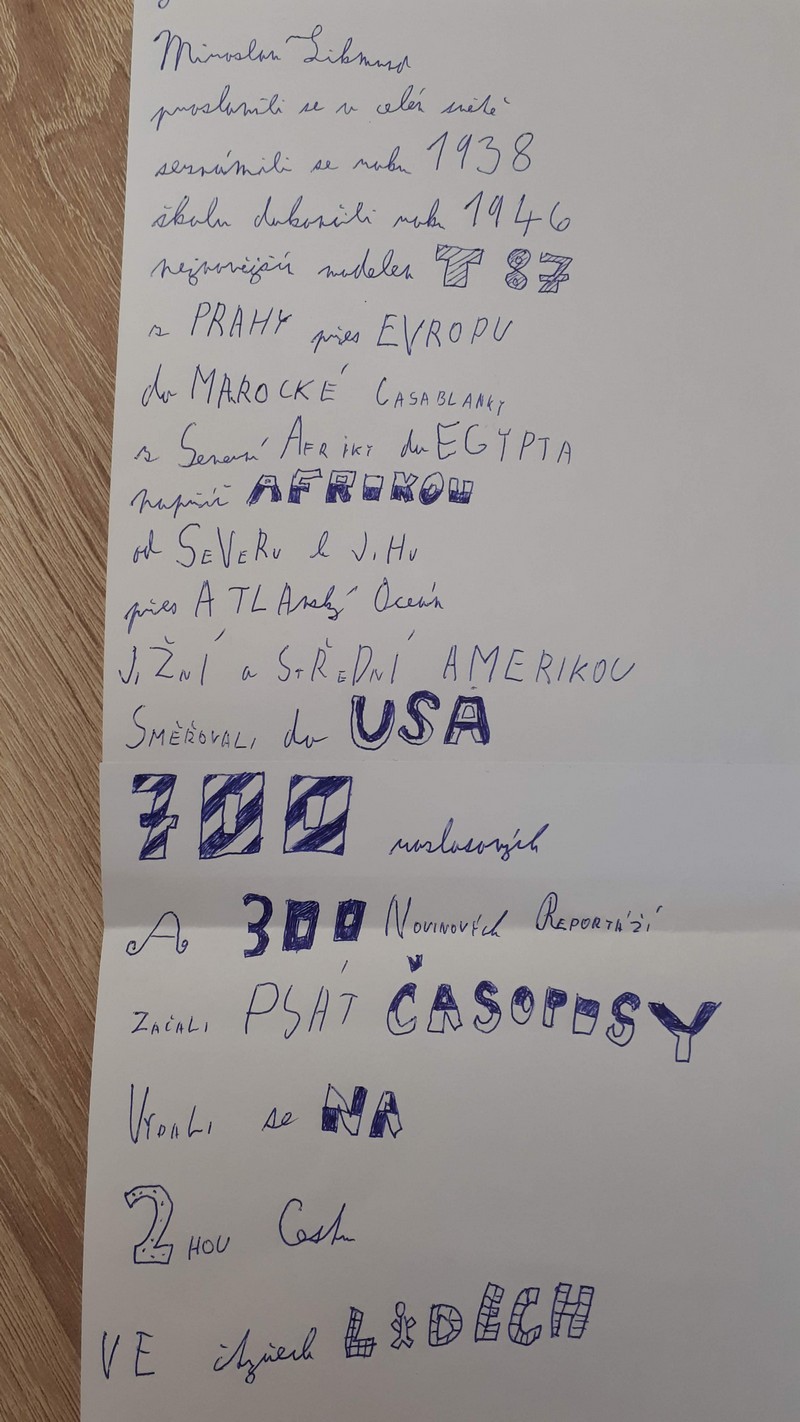 Miroslav Zikmund
proslavili se v celém světě
seznámili se roku 1938
školu dokončili roku 1946
nejnovějším modelem T 87
z PRAHY přes EVROPU
do MAROCKÉ CASABLANKY
z Severní AFRIKY do EGYPTA
napříč AFRIKOU
od SEVERU k JIHU
přes ATLANSKÝ Oceán
JIŽNÍ a STŘEDNÍ AMERIKOU
SMĚŘOVALI do USA
700 rozhlasových
A 300 NOVINOVÝCH REPORTÁŽÍ
ZAČALI PSÁT ČASOPISY
VYDALI se NA
2HOU Cestu
VE LIDECH